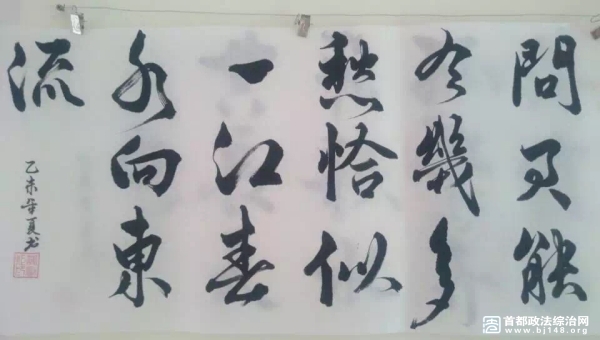 問君能
有幾多
愁恰似
一江春
水向東
流
乙未年夏书
首都政法综治网
www.bj148.org